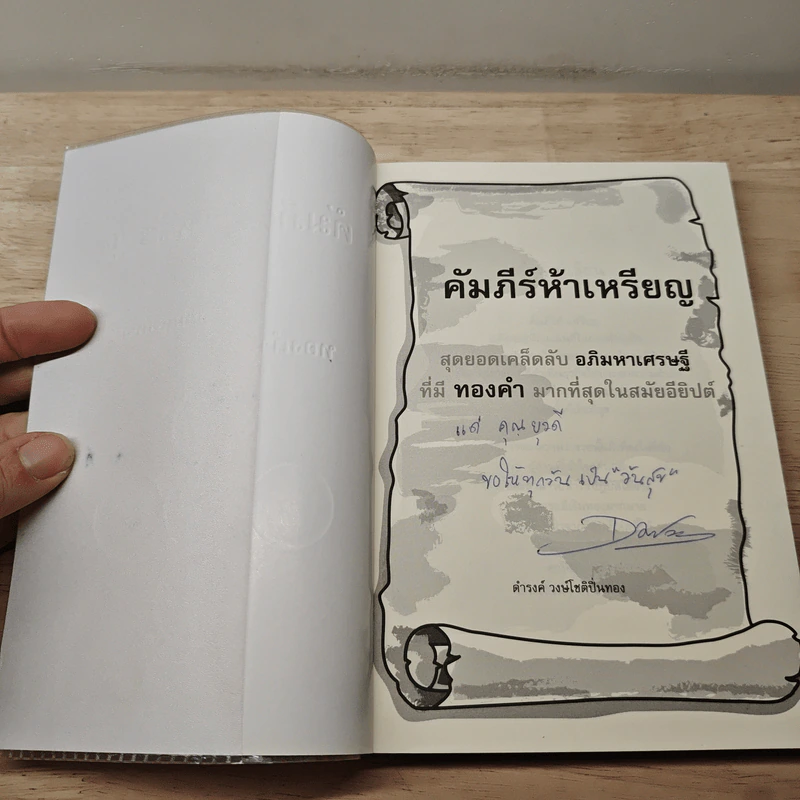 คัมภีร์ห้าเหรียญ
สุดยอดเคล็ดลับ อภิมหาเศรษฐี
ที่มี ทองคำ มากที่สุดในสมัยอียิปต์
แด่ คุณ ยุวดี
ขอให้ทุกวัน เป็น "วันสุข"
ดำรงค์ วงษ์โชติปิ่นทอง